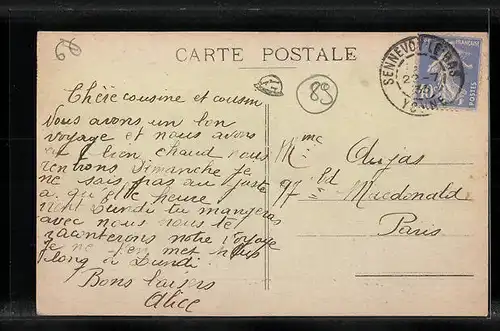 66
CARTE POSTALE
89
SENNEVOY-LE-BAS
YONNE
POSTES
Chère cousine et cousin
Nous avons un bon
voyage et nous avons
et bien chaud nous
rentrons Dimanche je
ne sais pas au juste
a quelle heure
Lundi tu mangeras
avec nous nous te
raconterons notre voyage
Je ne t'en met plus
long à Lundi
Bons baisers
Alice
Mme Aujas
97 bd
Macdonald
Paris